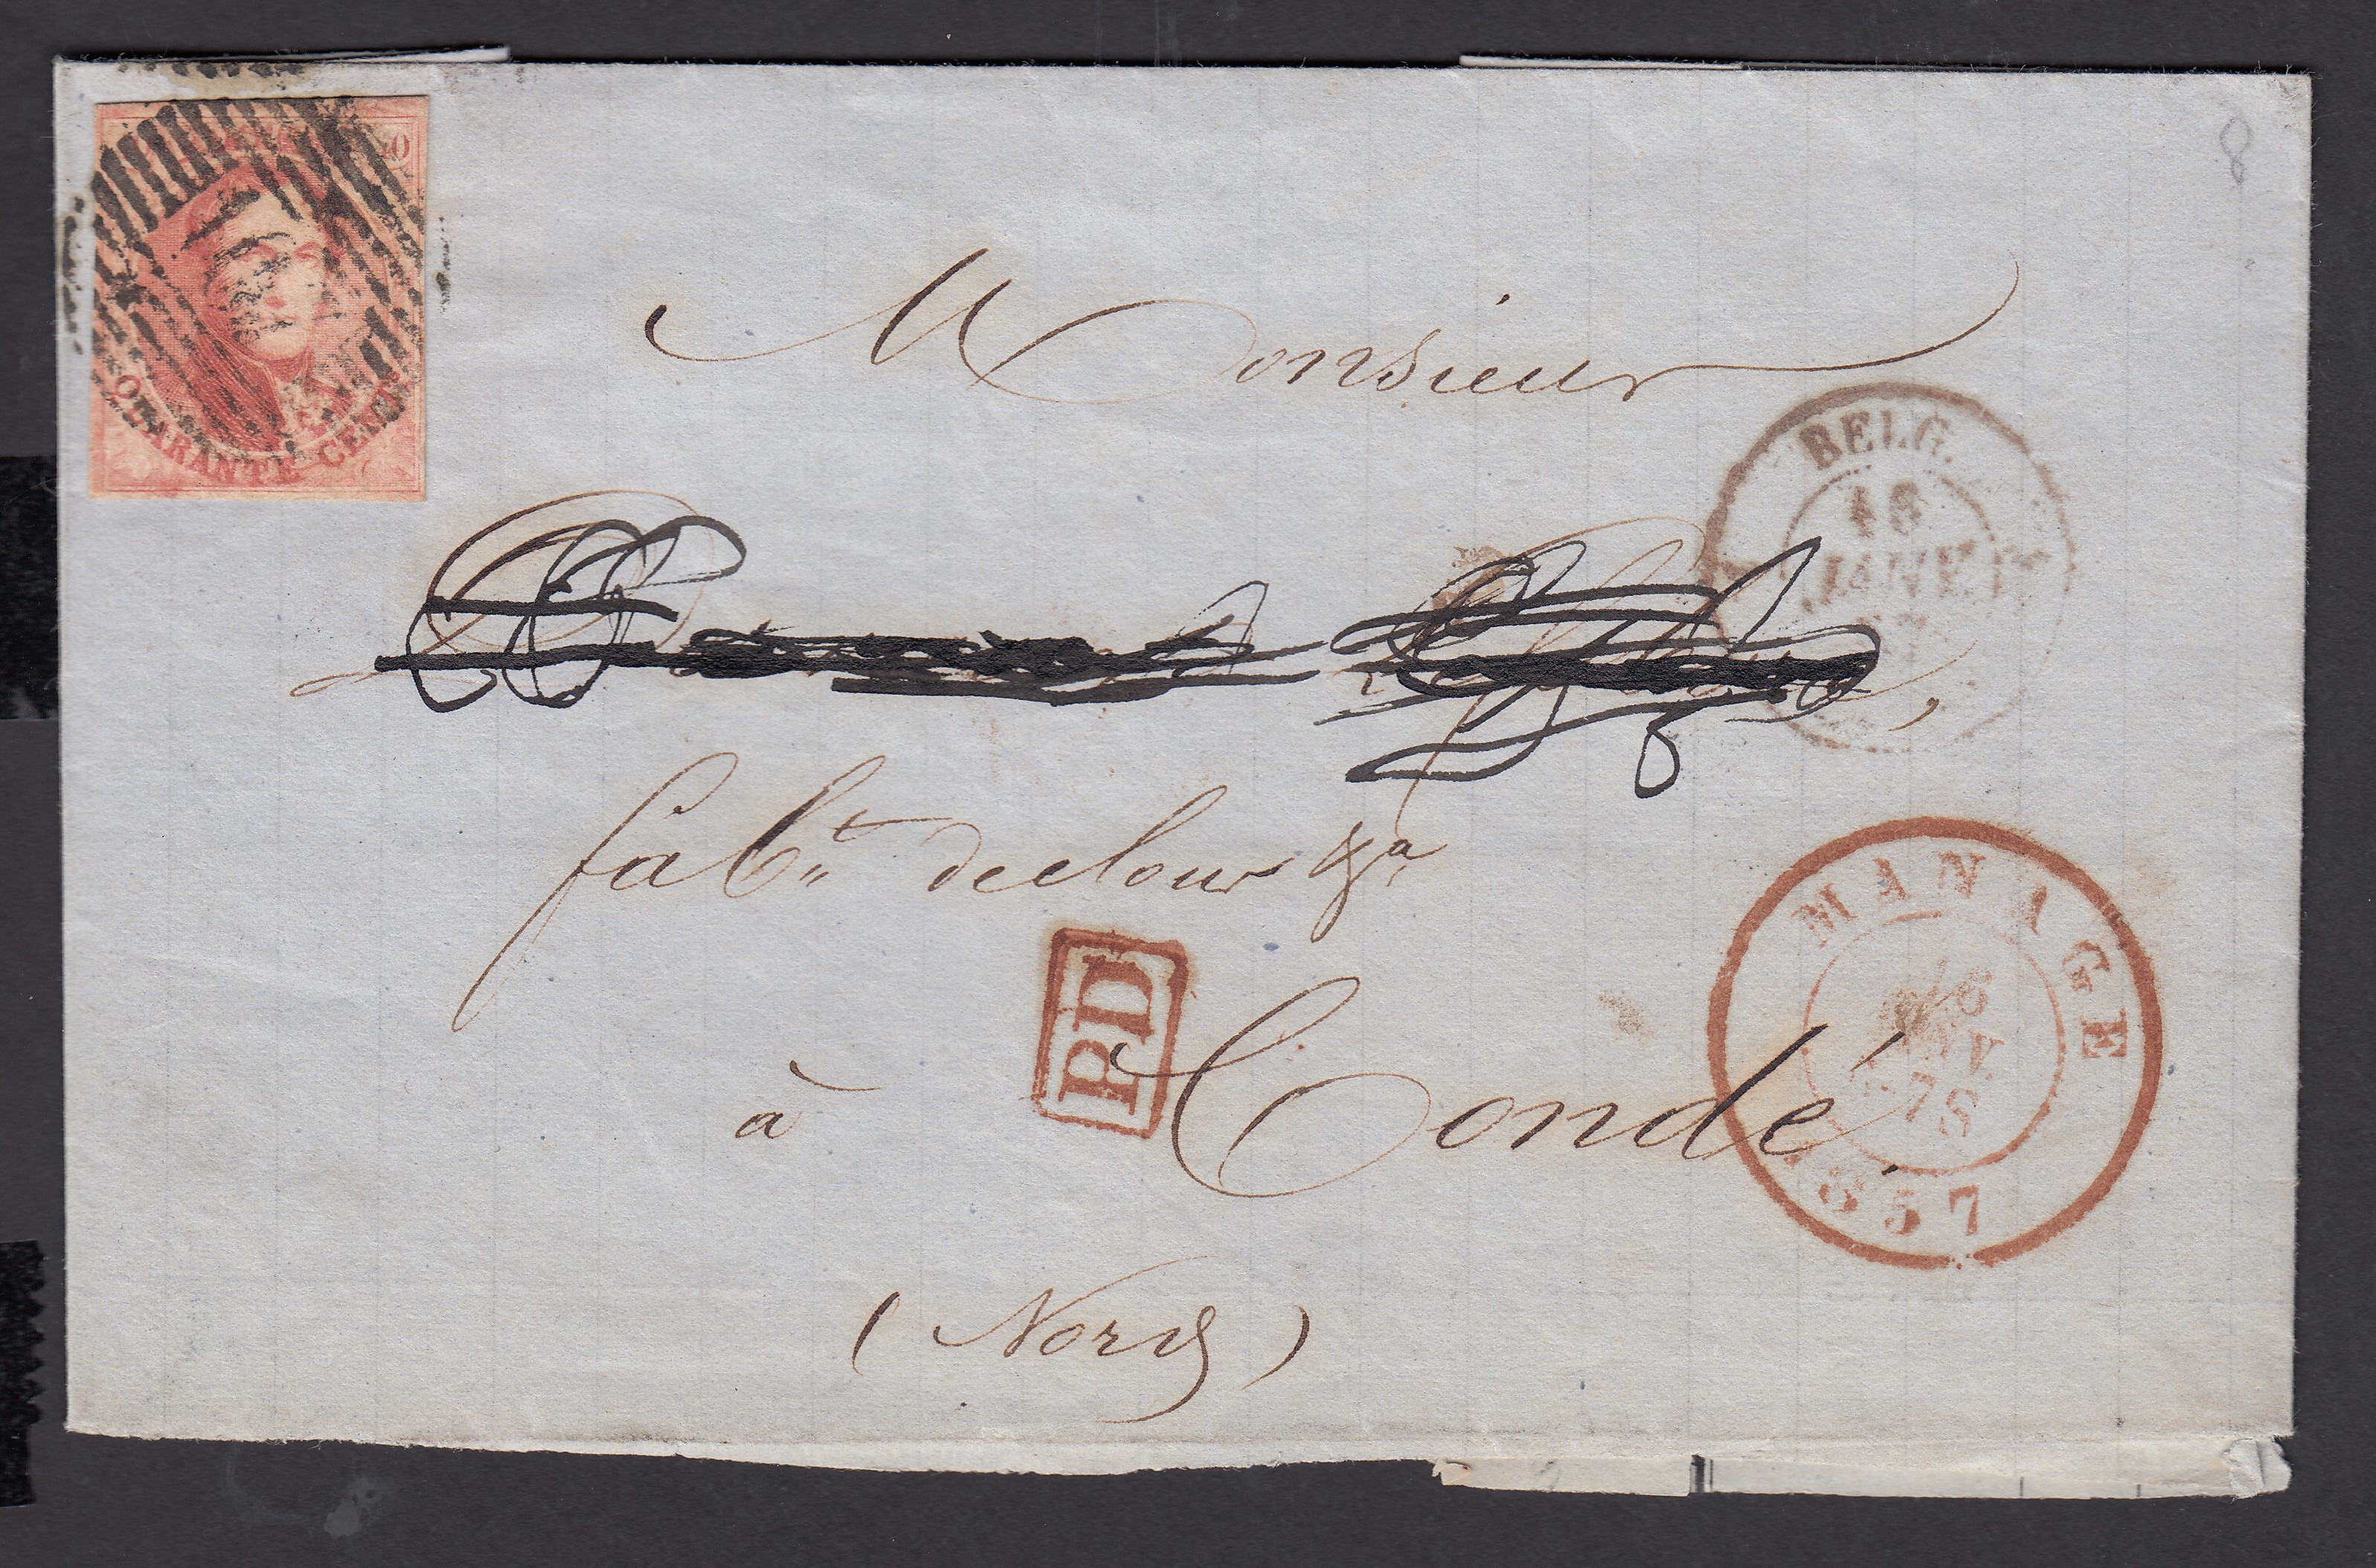 40
QUARANTE CENTS
8
Monsieur
BELG.
16
JANV
fabt. de clous &a
MANAGE
1857
PD
à Condé.
(Nord)